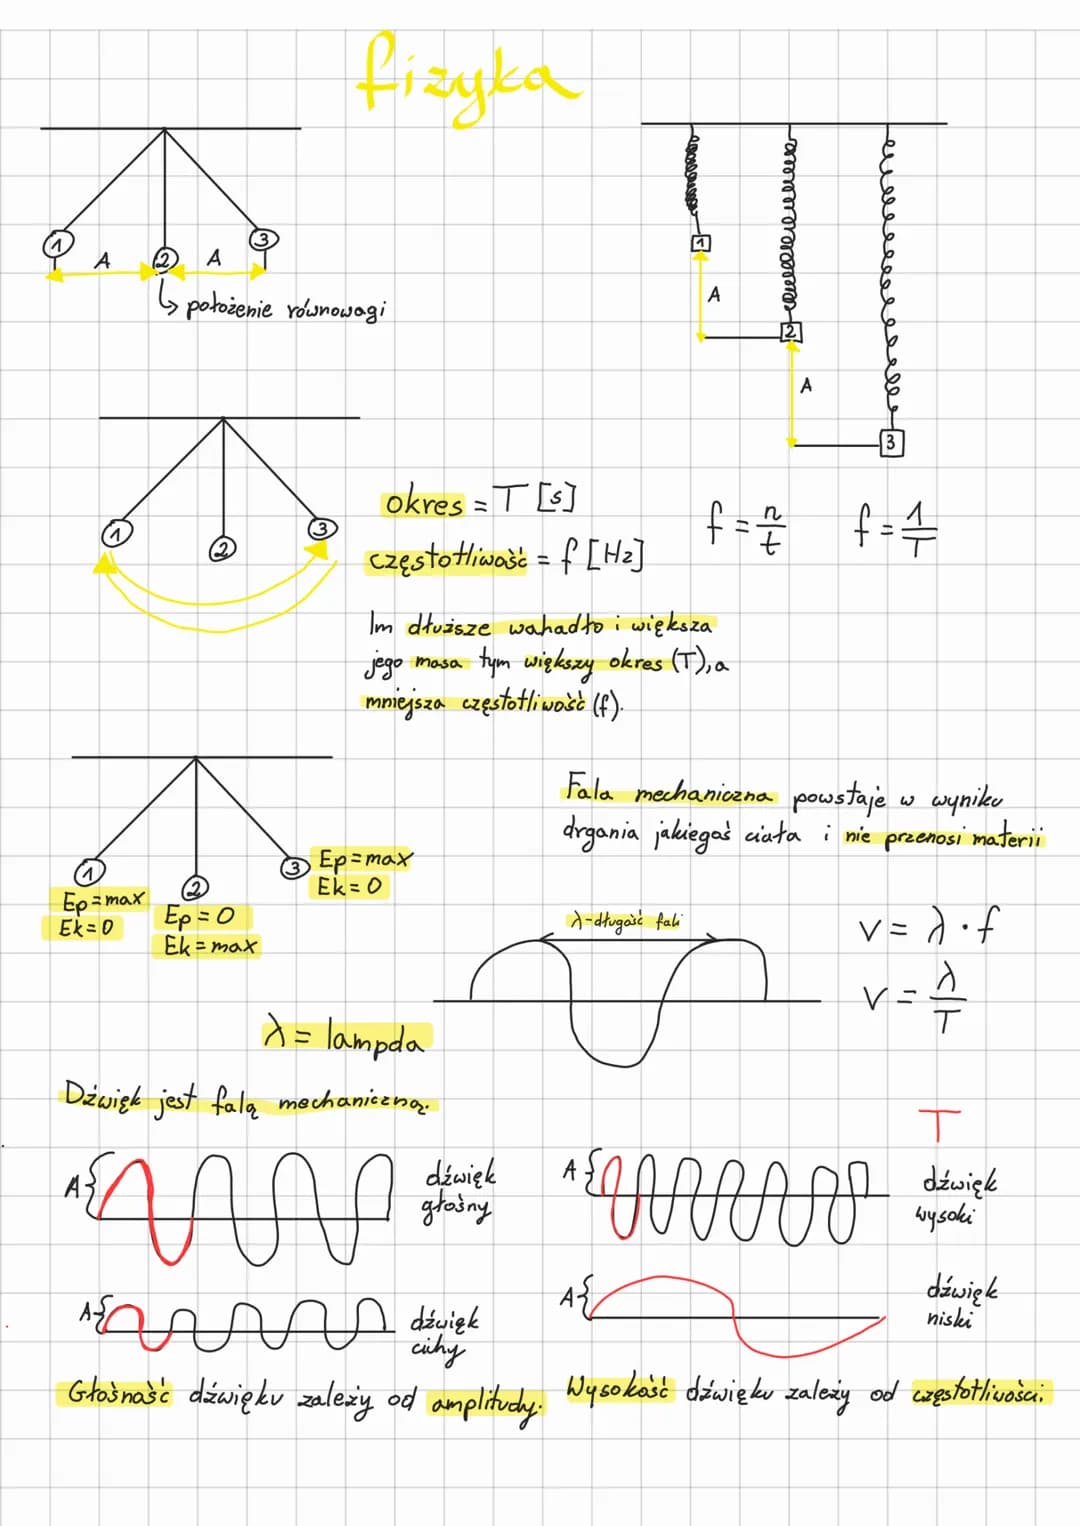 fizyka
1
A
2
A
3
↳ położenie równowagi
1
A
2
A
3
1
2
3
okres = T [s]
częstotliwość = f [Hz]
f = n/t
f = 1/T
Im dłuższe wahadło i większa
jego masa tym większy okres (T), a
mniejsza częstotliwość (f).
1
Ep = max
Ek = 0
2
Ep = 0
Ek = max
3
Ep = max
Ek = 0
Fala mechaniczna powstaje w wyniku
drgania jakiegoś ciała i nie przenosi materii
λ - długość fali
v = λ · f
v = λ/T
λ = lampda
Dźwięk jest falą mechaniczną.
A{
dźwięk
głośny
A{
dźwięk
cichy
Głośność dźwięku zależy od amplitudy.
T
A{
dźwięk
wysoki
A{
dźwięk
niski
Wysokość dźwięku zależy od częstotliwości.